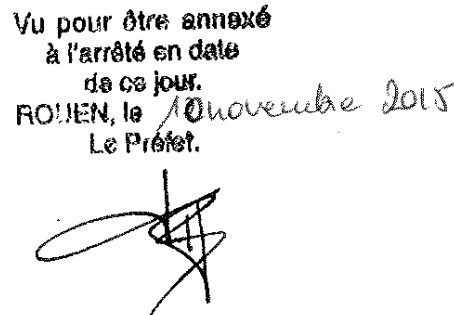 Vu pour être annexé
à l'arrêté en date
de ce jour.
ROUEN, le 10 novembre 2015
Le Préfet.